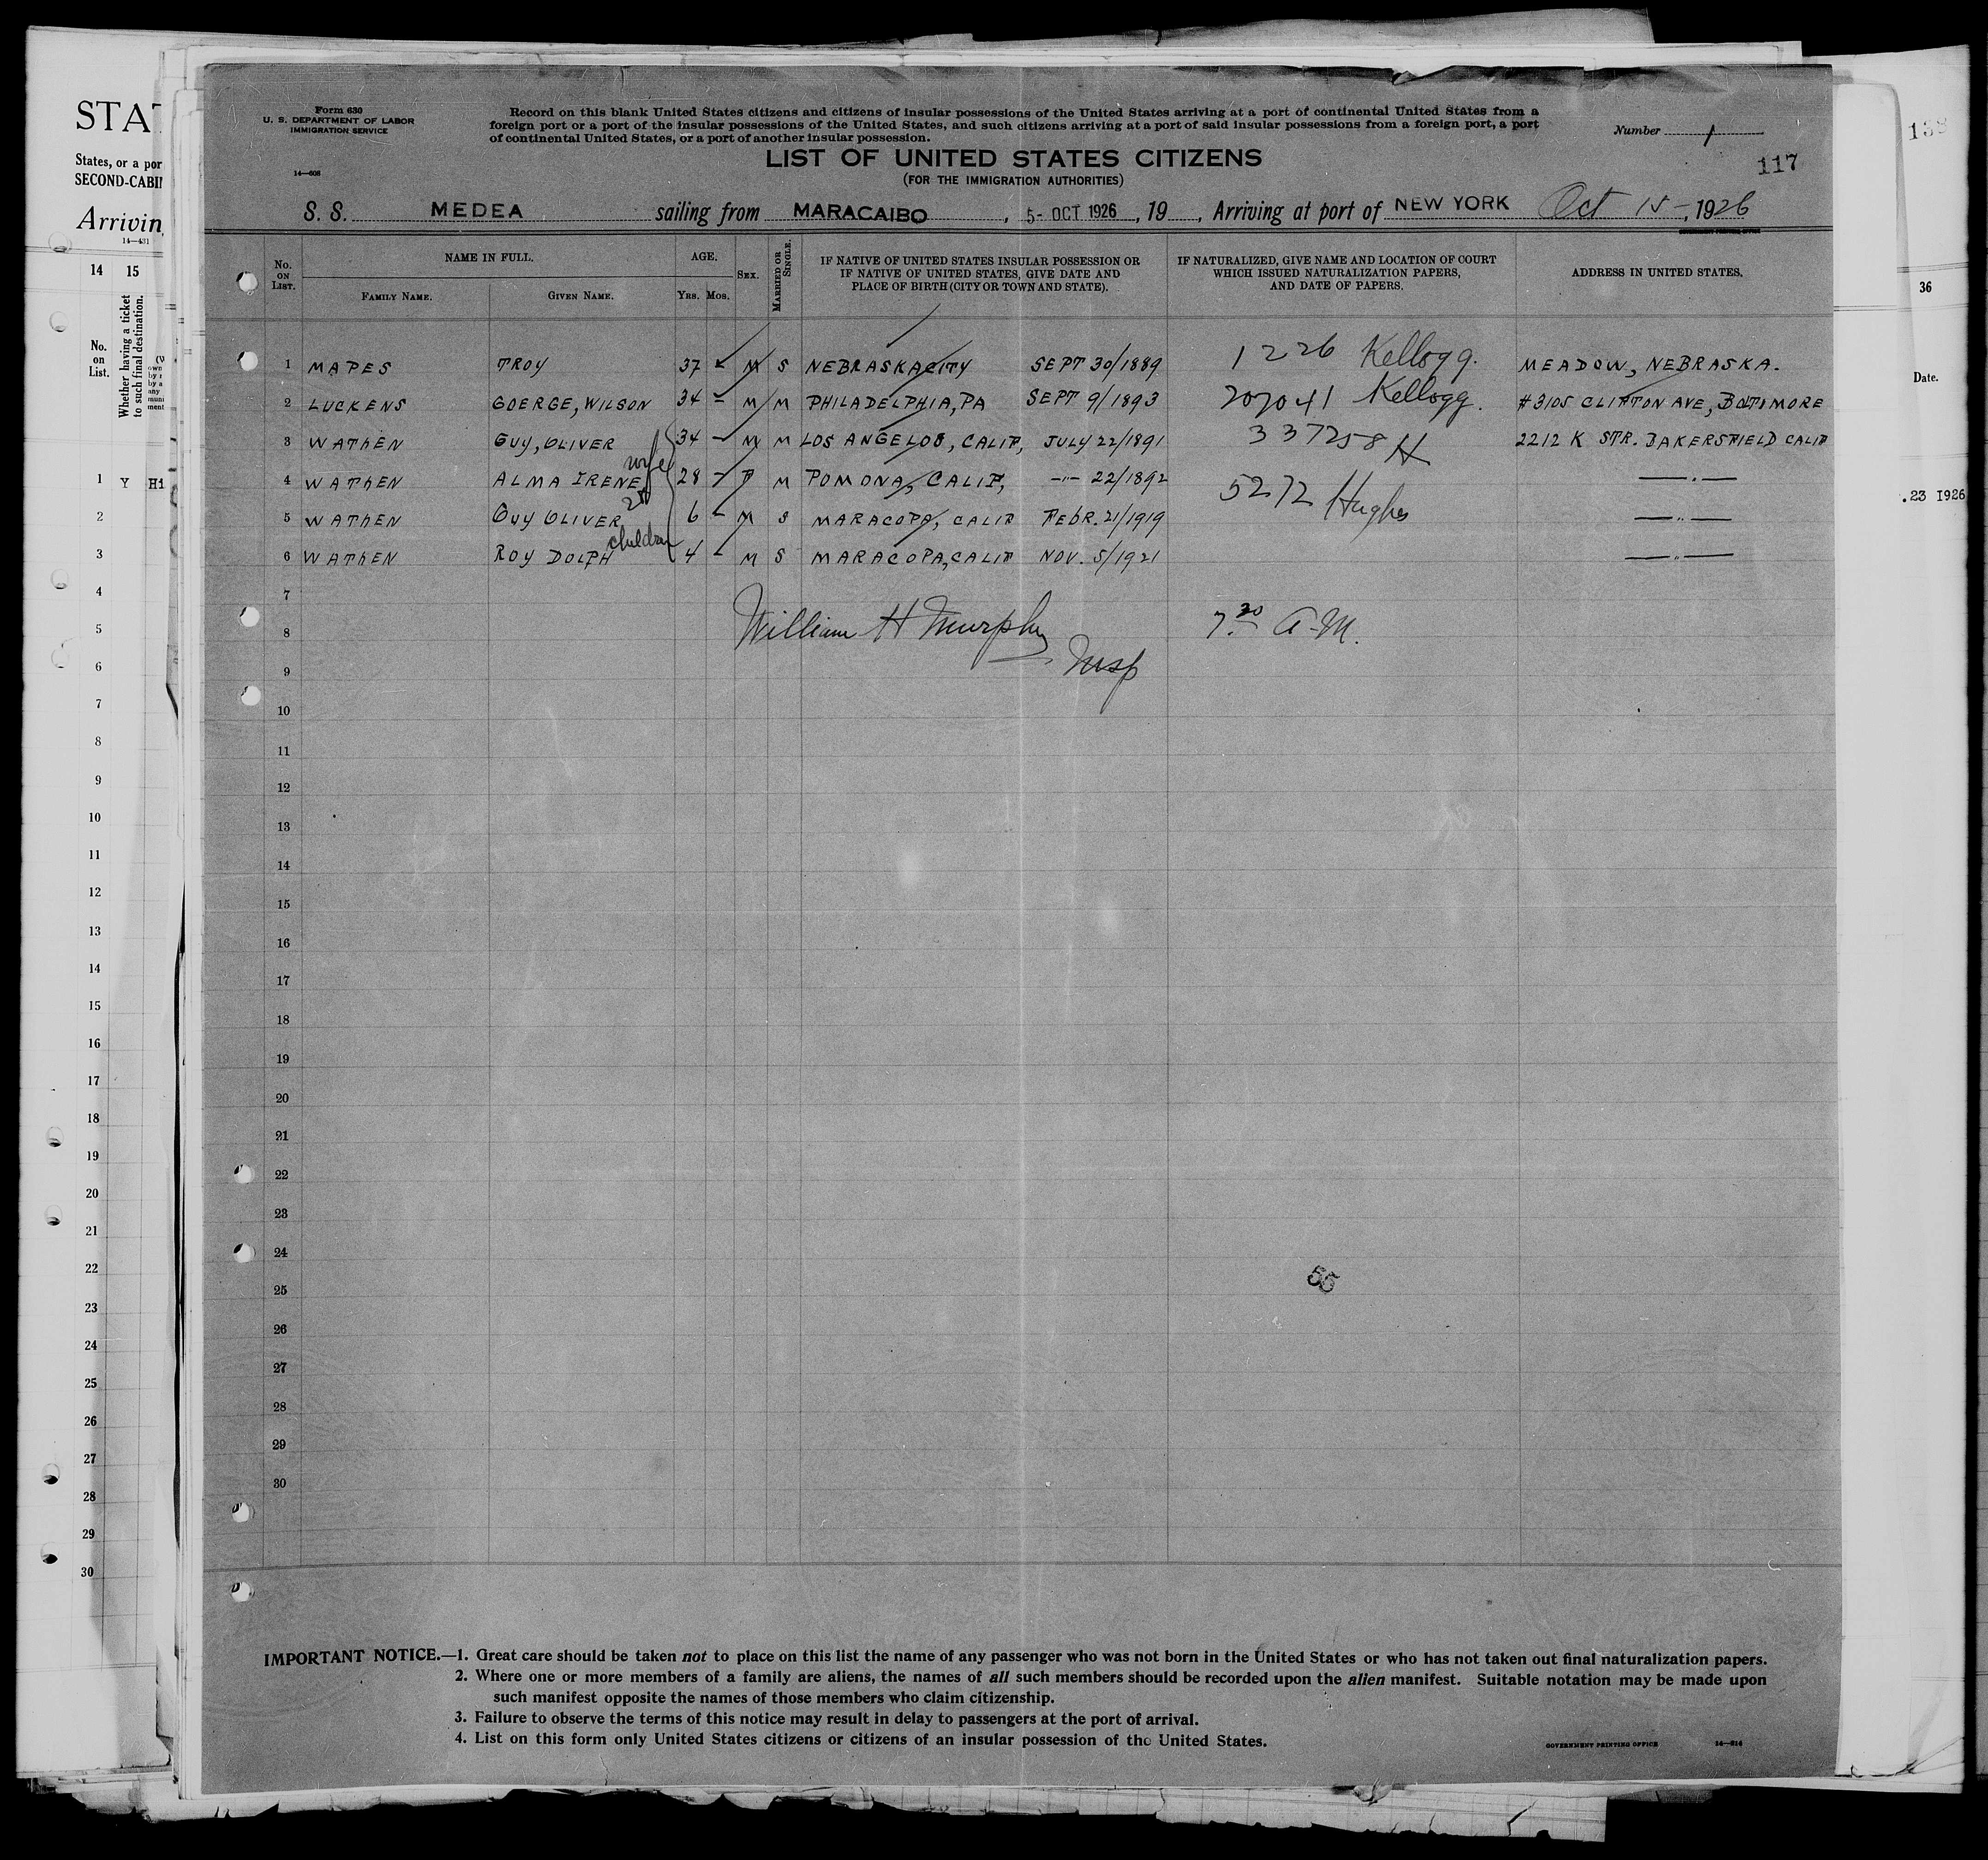 Form 630
U. S. DEPARTMENT OF LABOR
IMMIGRATION SERVICE
14—608
Record on this blank United States citizens and citizens of insular possessions of the United States arriving at a port of continental United States from a
foreign port or a port of the insular possessions of the United States, and such citizens arriving at a port of said insular possessions from a foreign port, a port
of continental United States, or a port of another insular possession.
Number 1
117
LIST OF UNITED STATES CITIZENS
(FOR THE IMMIGRATION AUTHORITIES)
S. S. MEDEA sailing from MARACAIBO, 5- OCT 1926, 19 , Arriving at port of NEW YORK Oct 15-, 1926
No. ON LIST. NAME IN FULL. FAMILY NAME. GIVEN NAME. AGE. YRS. MOS. SEX. MARRIED OR SINGLE. IF NATIVE OF UNITED STATES INSULAR POSSESSION OR IF NATIVE OF UNITED STATES, GIVE DATE AND PLACE OF BIRTH (CITY OR TOWN AND STATE). IF NATURALIZED, GIVE NAME AND LOCATION OF COURT WHICH ISSUED NATURALIZATION PAPERS, AND DATE OF PAPERS. ADDRESS IN UNITED STATES.
1 MAPES TROY 37 M S NEBRASKACITY SEPT 30/1889 1226 Kellogg. MEADOW, NEBRASKA.
2 LUCKENS GOERGE, WILSON 34 - M M PHILADELPHIA, PA SEPT 9/1893 207041 Kellogg. #3105 CLIFTON AVE, BALTIMORE
3 WATHEN GUY, OLIVER 34 - M M LOS ANGELOS, CALIF, JULY 22/1891 337258 H 2212 K STR. BAKERSFIELD CALIF
4 WATHEN ALMA IRENE wife 28 - F M POMONA, CALIF, -"- 22/1892 5272 Hughes —"—
5 WATHEN GUY OLIVER 2 6 - M S MARACOPA, CALIF FEBR. 21/1919 —"—
6 WATHEN ROY DOLPH children 4 - M S MARACOPA, CALIF NOV. 5/1921 —"—
7
8 William H Murphy 7 30 A.M.
9 Insp
10
11
12
13
14
15
16
17
18
19
20
21
22
23
24
25
26
27
28
29
30
55
IMPORTANT NOTICE.—1. Great care should be taken not to place on this list the name of any passenger who was not born in the United States or who has not taken out final naturalization papers.
2. Where one or more members of a family are aliens, the names of all such members should be recorded upon the alien manifest. Suitable notation may be made upon
such manifest opposite the names of those members who claim citizenship.
3. Failure to observe the terms of this notice may result in delay to passengers at the port of arrival.
4. List on this form only United States citizens or citizens of an insular possession of the United States.
GOVERNMENT PRINTING OFFICE
States, or a por
SECOND-CABI
Arrivin
14—431
14 15
No. on List.
Whether having a ticket to such final destination.
1 Y Hi
2
3
4
5
6
7
8
9
10
11
12
13
14
15
16
17
18
19
20
21
22
23
24
25
26
27
28
29
30
36
Date.
23 1926